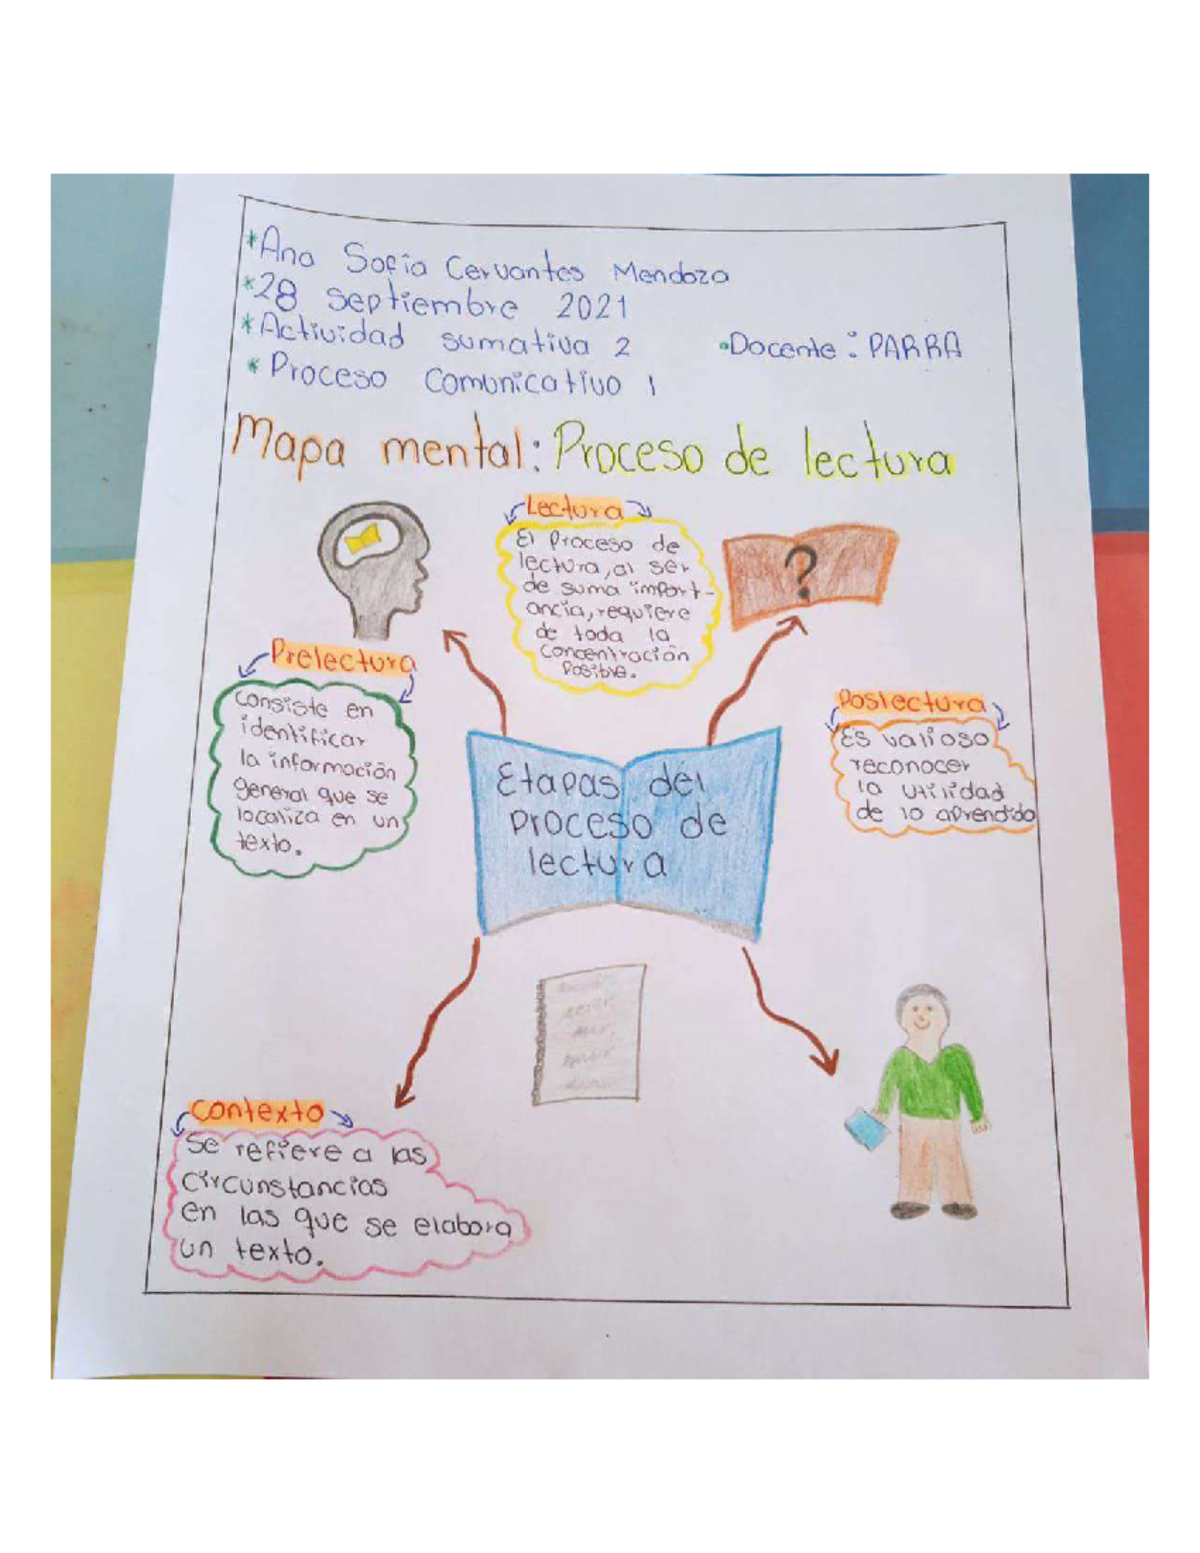 *Ana Sofía Cervantes Mendoza
*28 septiembre 2021
*Actividad sumativa 2
•Docente: PARRA
*Proceso Comunicativo 1
Mapa mental: Proceso de lectura
Lectura
El Proceso de
lectura, al ser
de suma import-
ancia, requiere
de toda la
concentración
Posible.
?
Prelectura
Consiste en
identificar
la información
general que se
localiza en un
texto.
Postectura
Es valioso
reconocer
la utilidad
de lo aprendido
Etapas del
proceso de
lectura
Contexto
Se refiere a las
circunstancias
en las que se elabora
un texto.